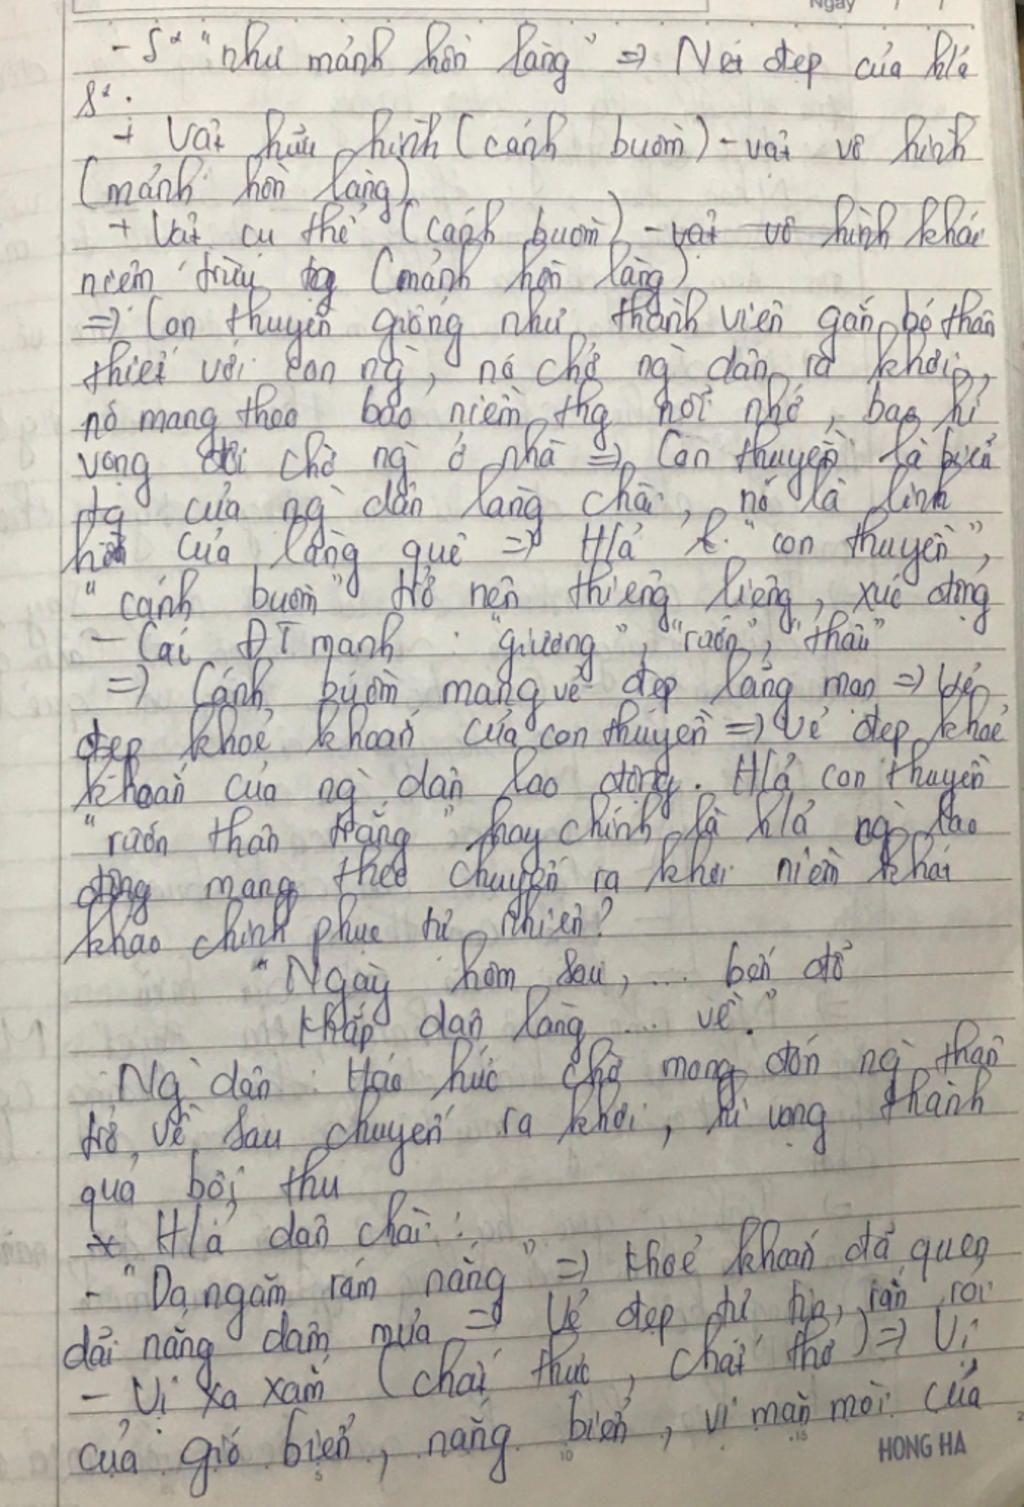 Ngày / /
- S² "như mảnh hồn làng" => Nét đẹp của h/ả
S² :
+ Vật hữu hình (cánh buồm) - vật vô hình
(mảnh hồn làng)
+ Vật cụ thể (cánh buồm) - vật vô hình khái
niệm trừu tg (mảnh hồn làng)
=> Con thuyền giống như thành viên gắn bó thân
thiết với con ng`, nó chở ng` dân ra khơi,
nó mang theo bao niềm thg nỗi nhớ, bao hi
vọng đợi chờ ng` ở nhà => Con thuyền là biểu
tg của ng` dân làng chài, nó là linh
hồn của làng quê => H/ả "con thuyền",
"cánh buồm" trở nên thiêng liêng, xúc động
- Các ĐT mạnh : "giương", "rướn", "thâu"
=> Cánh buồm mang vẻ đẹp lãng mạn => Vẻ
đẹp khoẻ khoắn của con thuyền => Vẻ đẹp khoẻ
khoắn của ng` dân lao động. H/ả con thuyền
"rướn thân trắng" hay chính là h/ả ng` lao
động mang theo chuyến ra khơi niềm khát
khao chinh phục tự nhiên?
"Ngày hôm sau, ... bến đỗ
Khắp dân làng ... về."
Ng` dân : Háo hức chờ mong đón ng` thân
trở về sau chuyến ra khơi, hi vọng thành
quả bội thu
* H/ả dân chài :
- "Da ngăm rám nắng" => Khoẻ khoắn đã quen
dãi nắng dầm mưa => Vẻ đẹp tự tin, rắn rỏi
- Vị xa xăm (chất thực, chất thơ) => Vị
của gió biển, nắng biển, vị mặn mòi của
HONG HA